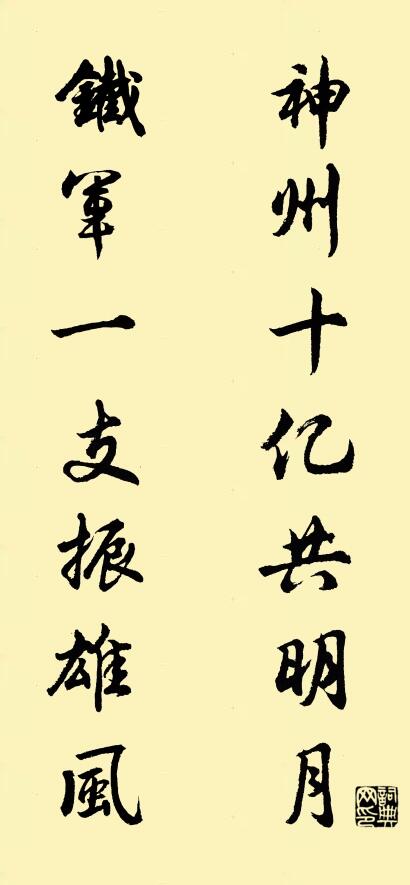 神州十亿共明月
鐵軍一支振雄風
詞典網印